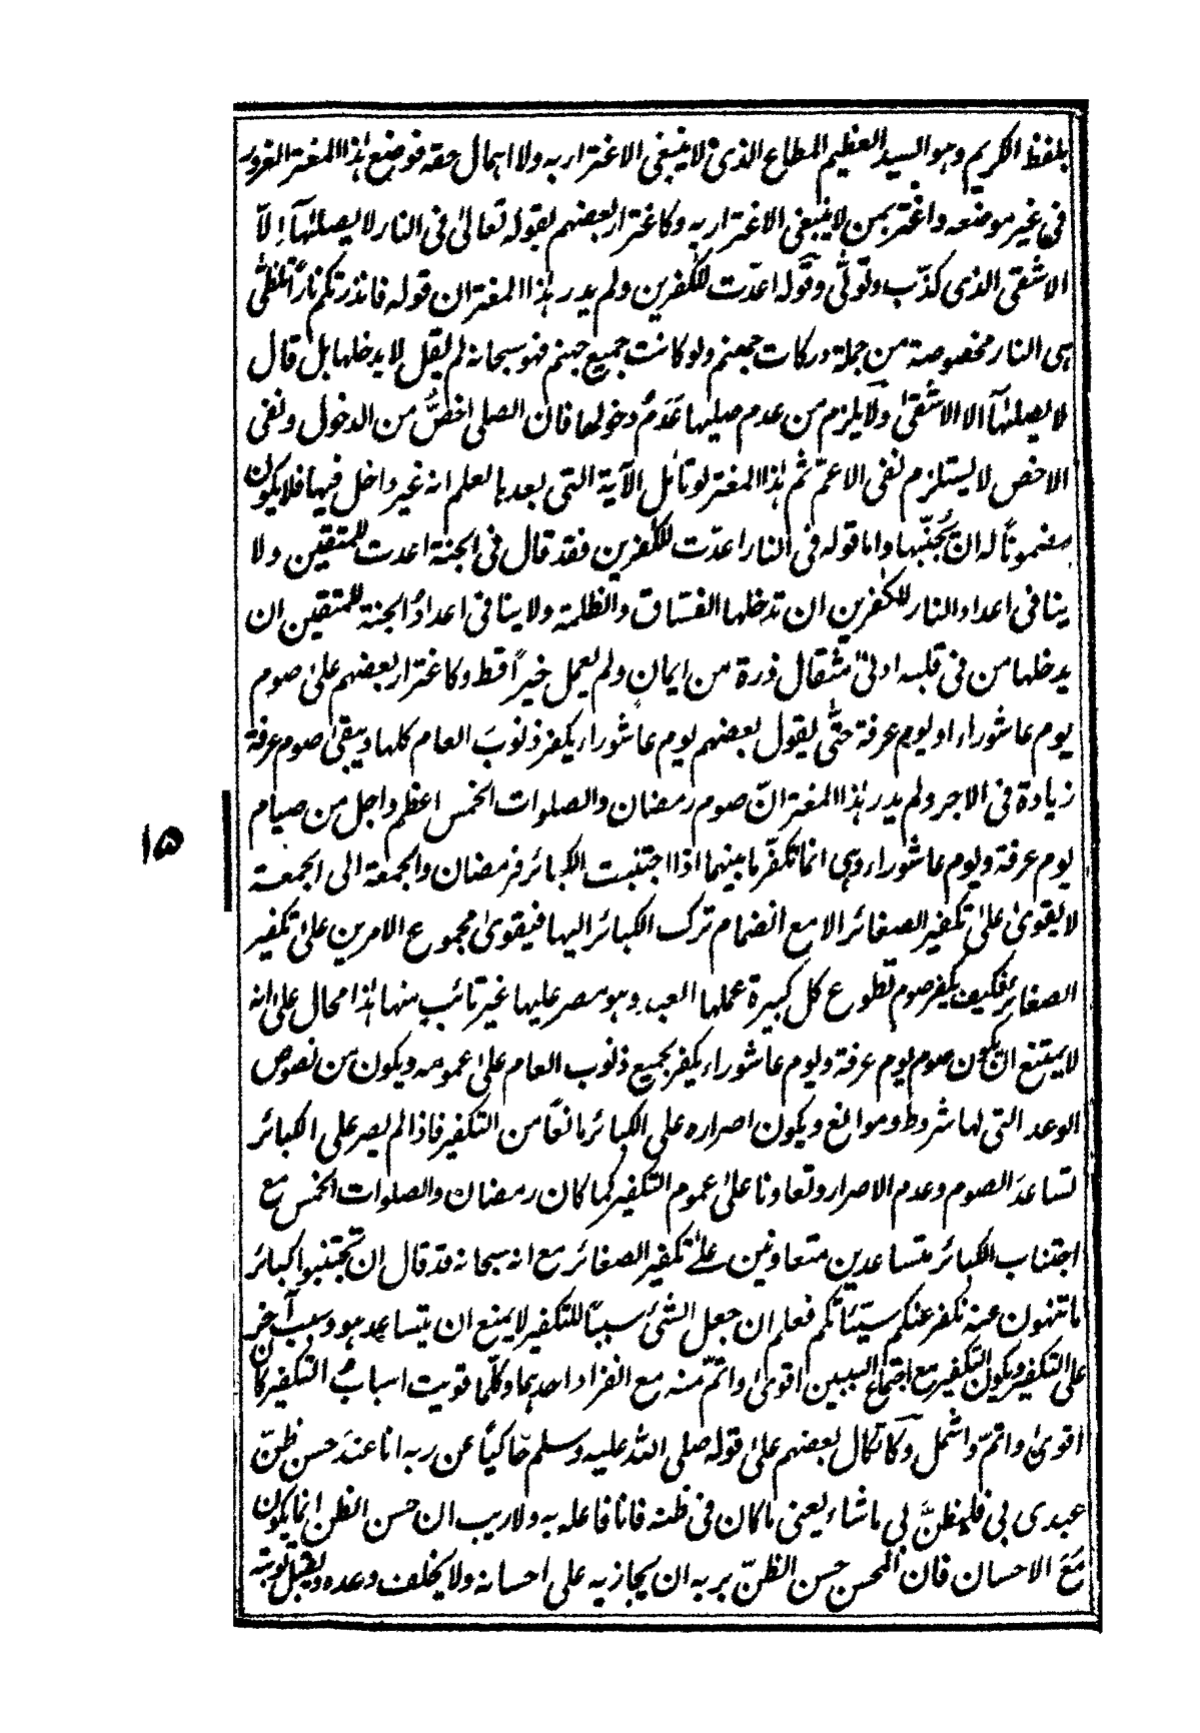 بلفظ الكريم وهو السيد العظيم المطاع الذى لا ينبغى الاغترار به ولا اهمال حقه فوضع هذا المغتر الغرور
فى غير موضعه واغتر بمن لا ينبغى الاغترار به وكاغترار بعضهم بقوله تعالىٰ فى النار لا يصلىٰها اِلاّ
الاشقى الذى كذّب وتولّٰى وقوله اعدّت للكٰفرين ولم يدر هذا المغتر ان قوله فانذرتكم ناراً تلظّٰى
هى النار مخصوصة من جملة دركات جهنم ولو كانت جميع جهنم فهو سبحانه لم يقل لا يدخلها بل قال
لا يصلىٰها الا الاشقىٰ ولا يلزم من عدم صليها عَدَمُ دخولها فان الصلى اخصُّ من الدخول ونفى
الاخص لا يستلزم نفى الاعمّ ثم هذا المغتر لو تأمل الآية التى بعدها لعلم انه غير داخل فيها فلا يكون
مضموناً له ان يُجَنَّبها واما قوله فى النار اعدّت للكٰفرين فقد قال فى الجنة اعدت للمتقين ولا
ينافى اعداد النار للكٰفرين ان تدخلها الفسّاق والظلمة ولا ينافى اعدادُ الجنة للمتقين ان
يدخلها من فى قلبه ادنىٰ مثقال ذرة من ايمان ولم يعمل خيراً قط وكاغترار بعضهم علىٰ صوم
يوم عاشوراء او يوم عرفة حتّٰى يقول بعضهم يوم عاشوراء يكفر ذنوبَ العام كلها ويبقىٰ صوم عرفة
زيادة فى الاجر ولم يدر هذا المغتر انّ صوم رمضان والصلوات الخمس اعظم واجل من صيام
يوم عرفة ويوم عاشوراء وهى انما تكفّر ما بينهما اذا اجتنبت الكبائر فرمضان والجمعة الى الجمعة
لا يقوىٰ علىٰ تكفير الصغائر الا مع انضمام ترك الكبائر اليها فيقوىٰ مجموع الامرين علىٰ تكفير
الصغائر فكيف يكفر صوم تطوع كل كبيرة عملها العبد وهو مصر عليها غير تائب منها هذا محال علىٰ انه
لا يمتنع ان يكون صوم يوم عرفة ويوم عاشوراء يكفر بجميع ذنوب العام علىٰ عمومه ويكون من نصوص
الوعد التى لها شروط وموانع ويكون اصراره على الكبائر مانعاً من التكفير فاذا لم يصر على الكبائر
تساعدَ الصوم وعدم الاصرار وتعاونا علىٰ عموم التكفير كما كان رمضان والصلوات الخمس مع
اجتناب الكبائر متساعدين متعاونين علىٰ تكفير الصغائر مع انه سبحانه قد قال ان تجتنبوا كبائر
ما تنهون عنه نكفر عنكم سيّئاتكم فعلم ان جعل الشئ سببًا للتكفير لا يمنع ان يتساعد هو وسبب آخر
على التكفير ويكون التكفير مع اجتماع السببين اقوىٰ واتمّ منه مع انفراد احدهما وكلّما قويت اسبابُ التكفير كان
اقوىٰ واتمّ واشمل وكاتكال بعضهم علىٰ قوله صلى الله عليه وسلم حاكياً عن ربه انا عندَ حسن ظنّ
عبدى بى فليظنَّ بى ما شاء يعنى ما كان فى ظنه فانا فاعله به ولا ريب ان حسن الظن انما يكون
مَعَ الاحسان فان المحسن حسن الظنّ بربه ان يجازيه على احسانه ولا يخلف وعده ويقبل توبته
۱۵